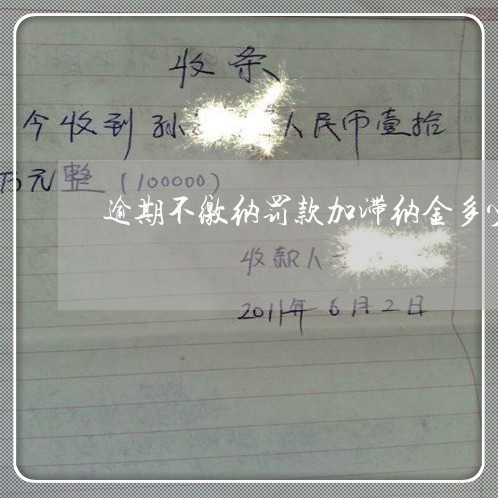 收条
今收到孙 人民币壹拾
万元整(100000)
逾期不缴纳罚款加滞纳金多
收款人
2011年6月2日